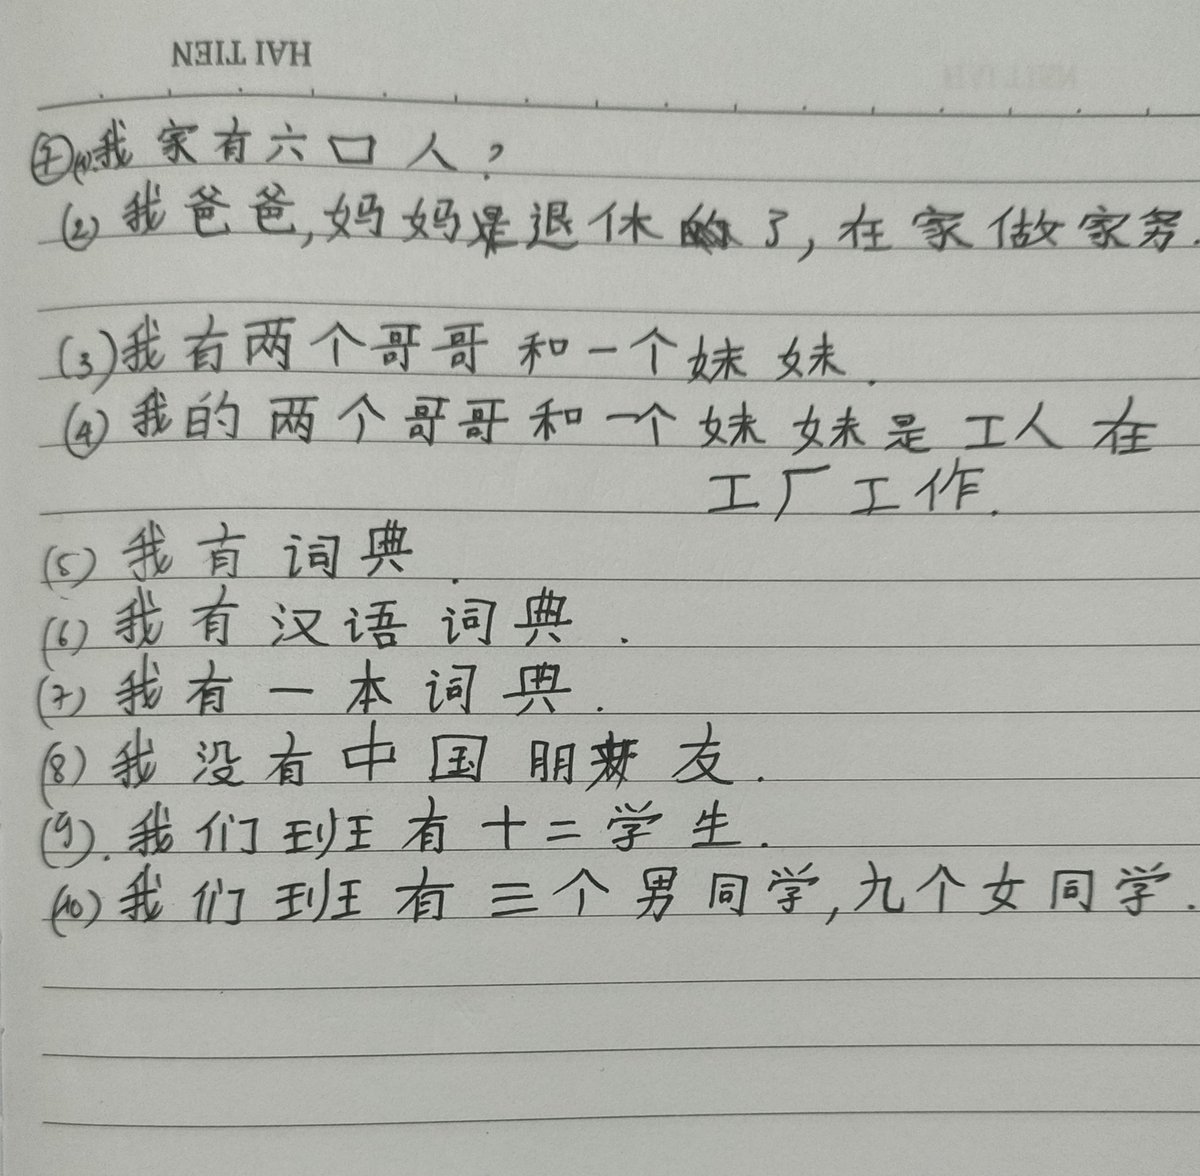 HAI TIEN
⑦(1).我家有六口人?
(2) 我爸爸,妈妈退休了,在家做家务.
(3)我有两个哥哥和一个妹妹.
(4) 我的两个哥哥和一个妹妹是工人在
工厂工作.
(5) 我有词典.
(6) 我有汉语词典.
(7) 我有一本词典.
(8) 我没有中国朋友.
(9). 我们班有十二学生.
(10) 我们班有三个男同学,九个女同学.